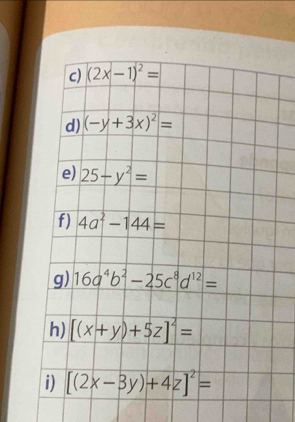 c) (2x−1)² =
d) (−y+3x)² =
e) 25−y² =
f) 4a² −144 =
g) 16a⁴b² −25c⁸d¹² =
h) [(x+y)+5z]² =
i) [(2x−3y)+4z]² =